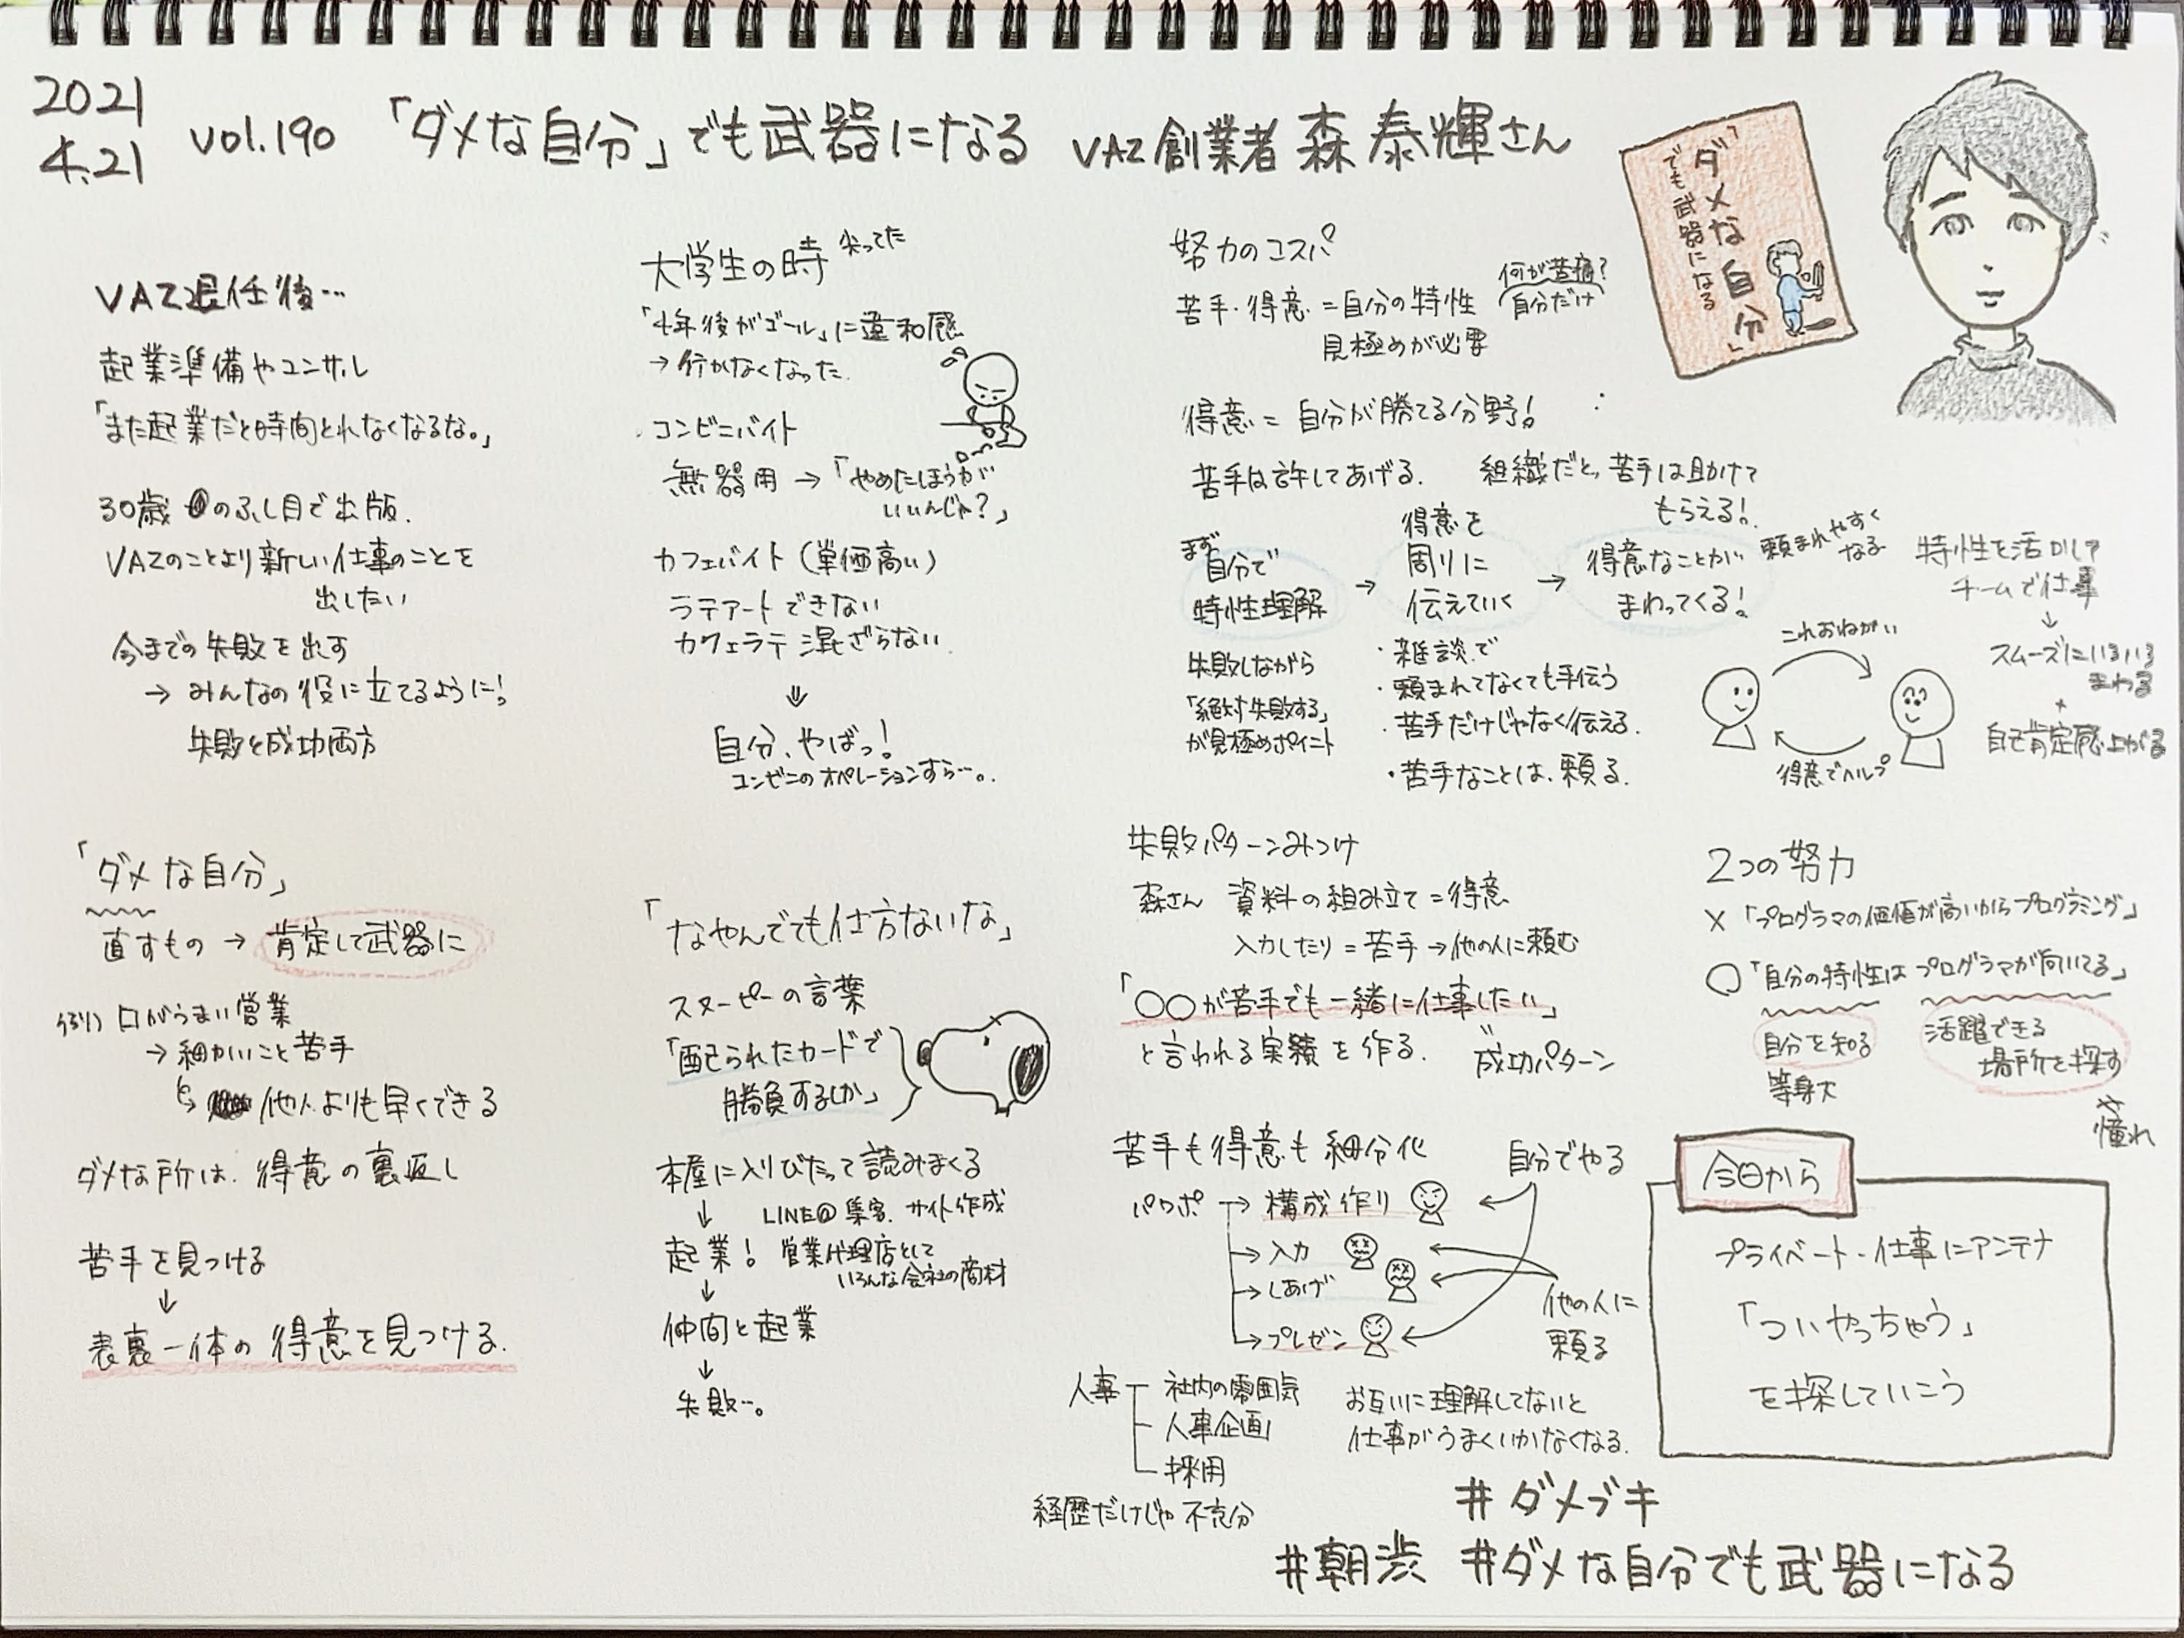 2021
4.21
vol.190 「ダメな自分」でも武器になる VAZ創業者 森 泰輝さん
「ダメな自分」
でも武器になる
VAZ退任後…
起業準備やコンサル
「また起業だと時間とれなくなるな。」
30歳のふし目で出版.
VAZのことより新しい仕事のことを
出したい
今までの失敗を出す
→ みんなの役に立てるように!
失敗と成功両方
「ダメな自分」
直すもの → 肯定して武器に
例) 口がうまい営業
→ 細かいこと苦手
↳ 他人よりも早くできる
ダメな所は、得意の裏返し
苦手を見つける
↓
表裏一体の得意を見つける.
大学生の時 尖ってた
「4年後がゴール」に違和感
→ 行かなくなった.
コンビニバイト
無器用 → 「やめたほうが
いいんじゃ?」
カフェバイト(単価高い)
ラテアートできない
カフェラテ混ざらない.
⇓
自分、やばっ!
コンビニのオペレーションすら…。
「なやんでても仕方ないな」
スヌーピーの言葉
「配られたカードで
勝負するしか」
本屋に入りびたって読みまくる
↓ LINE@集客、サイト作成
起業! 営業代理店として
いろんな会社の商材
↓
仲間と起業
↓
失敗…。
努力のコスパ
苦手・得意 = 自分の特性
見極めが必要
何が苦痛?
自分だけ
得意 = 自分が勝てる分野!
苦手は許してあげる.
組織だと、苦手は助けて
もらえる!
まず
自分で
特性理解
→
得意を
周りに
伝えていく
→
得意なことが
まわってくる!
頼まれやすく
なる
失敗しながら
「絶対失敗する」
が見極めポイント
・雑談で
・頼まれてなくても手伝う
・苦手だけじゃなく伝える.
・苦手なことは、頼る.
これおねがい
得意でヘルプ
特性を活かして
チームで仕事
↓
スムーズにいろいろ
まわる
+
自己肯定感上がる
失敗パターンみつけ
森さん 資料の組み立て = 得意
入力したり = 苦手 → 他の人に頼む
「〇〇が苦手でも一緒に仕事したい」
と言われる実績を作る.
成功パターン
苦手も得意も細分化
パワポ → 構成作り
→ 入力
→ しあげ
→ プレゼン
自分でやる
他の人に
頼る
人事 社内の雰囲気
人事企画
採用
経歴だけじゃ不充分
お互いに理解してないと
仕事がうまくいかなくなる.
2つの努力
× 「プログラマの価値が高いからプログラミング」
〇 「自分の特性はプログラマが向いてる」
自分を知る
等身大
活躍できる
場所を探す
憧れ
今日から
プライベート・仕事にアンテナ
「ついやっちゃう」
を探していこう
#ダメブキ
#朝渋 #ダメな自分でも武器になる